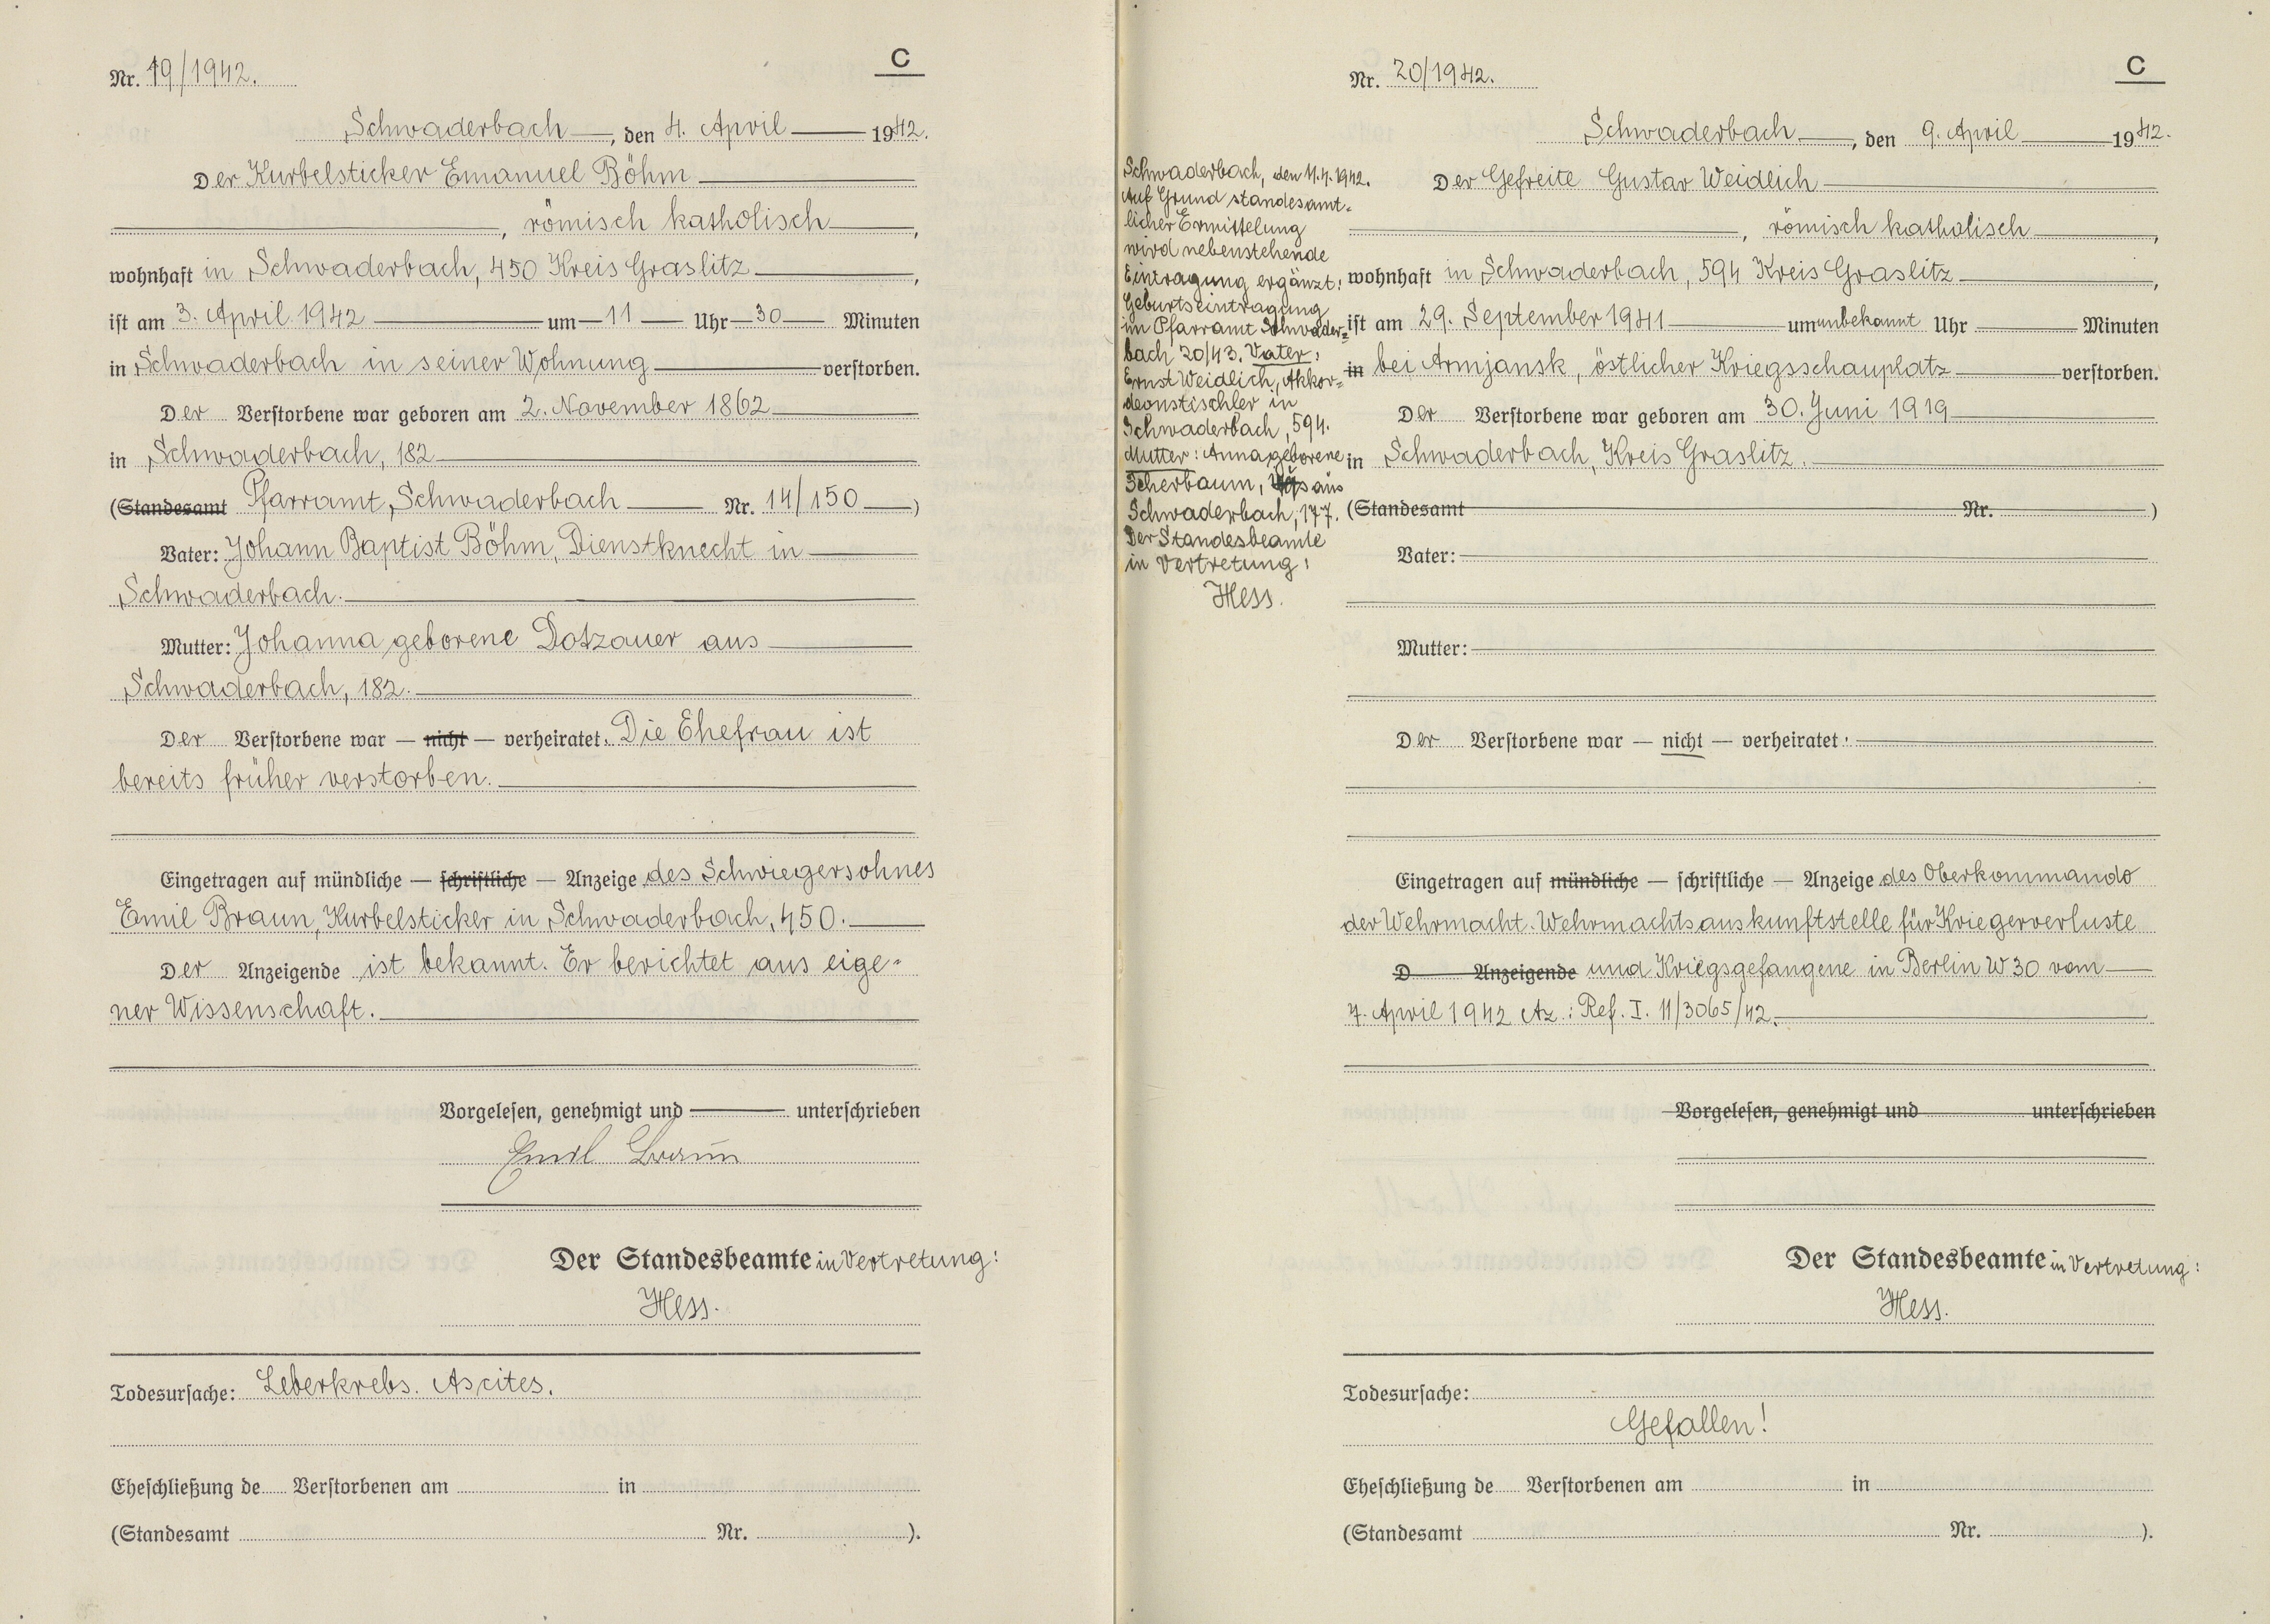 Nr. 19/1942.
C
Schwaderbach, den 4. April 1942.
Der Kurbelsticker Emanuel Böhm
, römisch katholisch,
wohnhaft in Schwaderbach, 450 Kreis Graslitz,
ist am 3. April 1942 um 11 Uhr 30 Minuten
in Schwaderbach in seiner Wohnung verstorben.
Der Verstorbene war geboren am 2. November 1862
in Schwaderbach, 182
(Standesamt Pfarramt, Schwaderbach Nr. 14/150)
Vater: Johann Baptist Böhm, Dienstknecht in
Schwaderbach.
Mutter: Johanna geborene Dotzauer aus
Schwaderbach, 182.
Der Verstorbene war — nicht — verheiratet. Die Ehefrau ist
bereits früher verstorben.
Eingetragen auf mündliche — schriftliche — Anzeige des Schwiegersohnes
Emil Braun, Kurbelsticker in Schwaderbach, 450.
Der Anzeigende ist bekannt. Er berichtet aus eige-
ner Wissenschaft.
Vorgelesen, genehmigt und unterschrieben
Emil Braun
Der Standesbeamte in Vertretung:
Hess.
Todesursache: Leberkrebs. Ascites.
Eheschließung de Verstorbenen am in
(Standesamt Nr. ).
Nr. 20/1942.
C
Schwaderbach, den 9. April 1942.
Der Gefreite Gustav Weidlich
, römisch katholisch,
wohnhaft in Schwaderbach, 594 Kreis Graslitz,
ist am 29. September 1941 um unbekannt Uhr Minuten
in bei Armjansk, östlicher Kriegsschauplatz verstorben.
Der Verstorbene war geboren am 30. Juni 1919
in Schwaderbach, Kreis Graslitz.
(Standesamt Nr. )
Vater:
Mutter:
Der Verstorbene war — nicht — verheiratet.
Eingetragen auf mündliche — schriftliche — Anzeige des Oberkommando
der Wehrmacht. Wehrmachtsauskunftstelle für Kriegerverluste
D Anzeigende und Kriegsgefangene in Berlin W 30 vom
7. April 1942 Az.: Ref. I. 11/3065/42.
Vorgelesen, genehmigt und unterschrieben
Der Standesbeamte in Vertretung:
Hess.
Todesursache:
Gefallen!
Eheschließung de Verstorbenen am in
(Standesamt Nr. ).
Schwaderbach, den 11.4.1942.
Auf Grund standesamt-
licher Ermittelung
wird nebenstehende
Eintragung ergänzt:
Geburtseintragung
im Pfarramt Schwader-
bach 20/43. Vater:
Ernst Weidlich, Akkor-
deonstischler in
Schwaderbach, 594.
Mutter: Anna geborene
Scherbaum, aus
Schwaderbach, 177.
Der Standesbeamte
in Vertretung:
Hess.